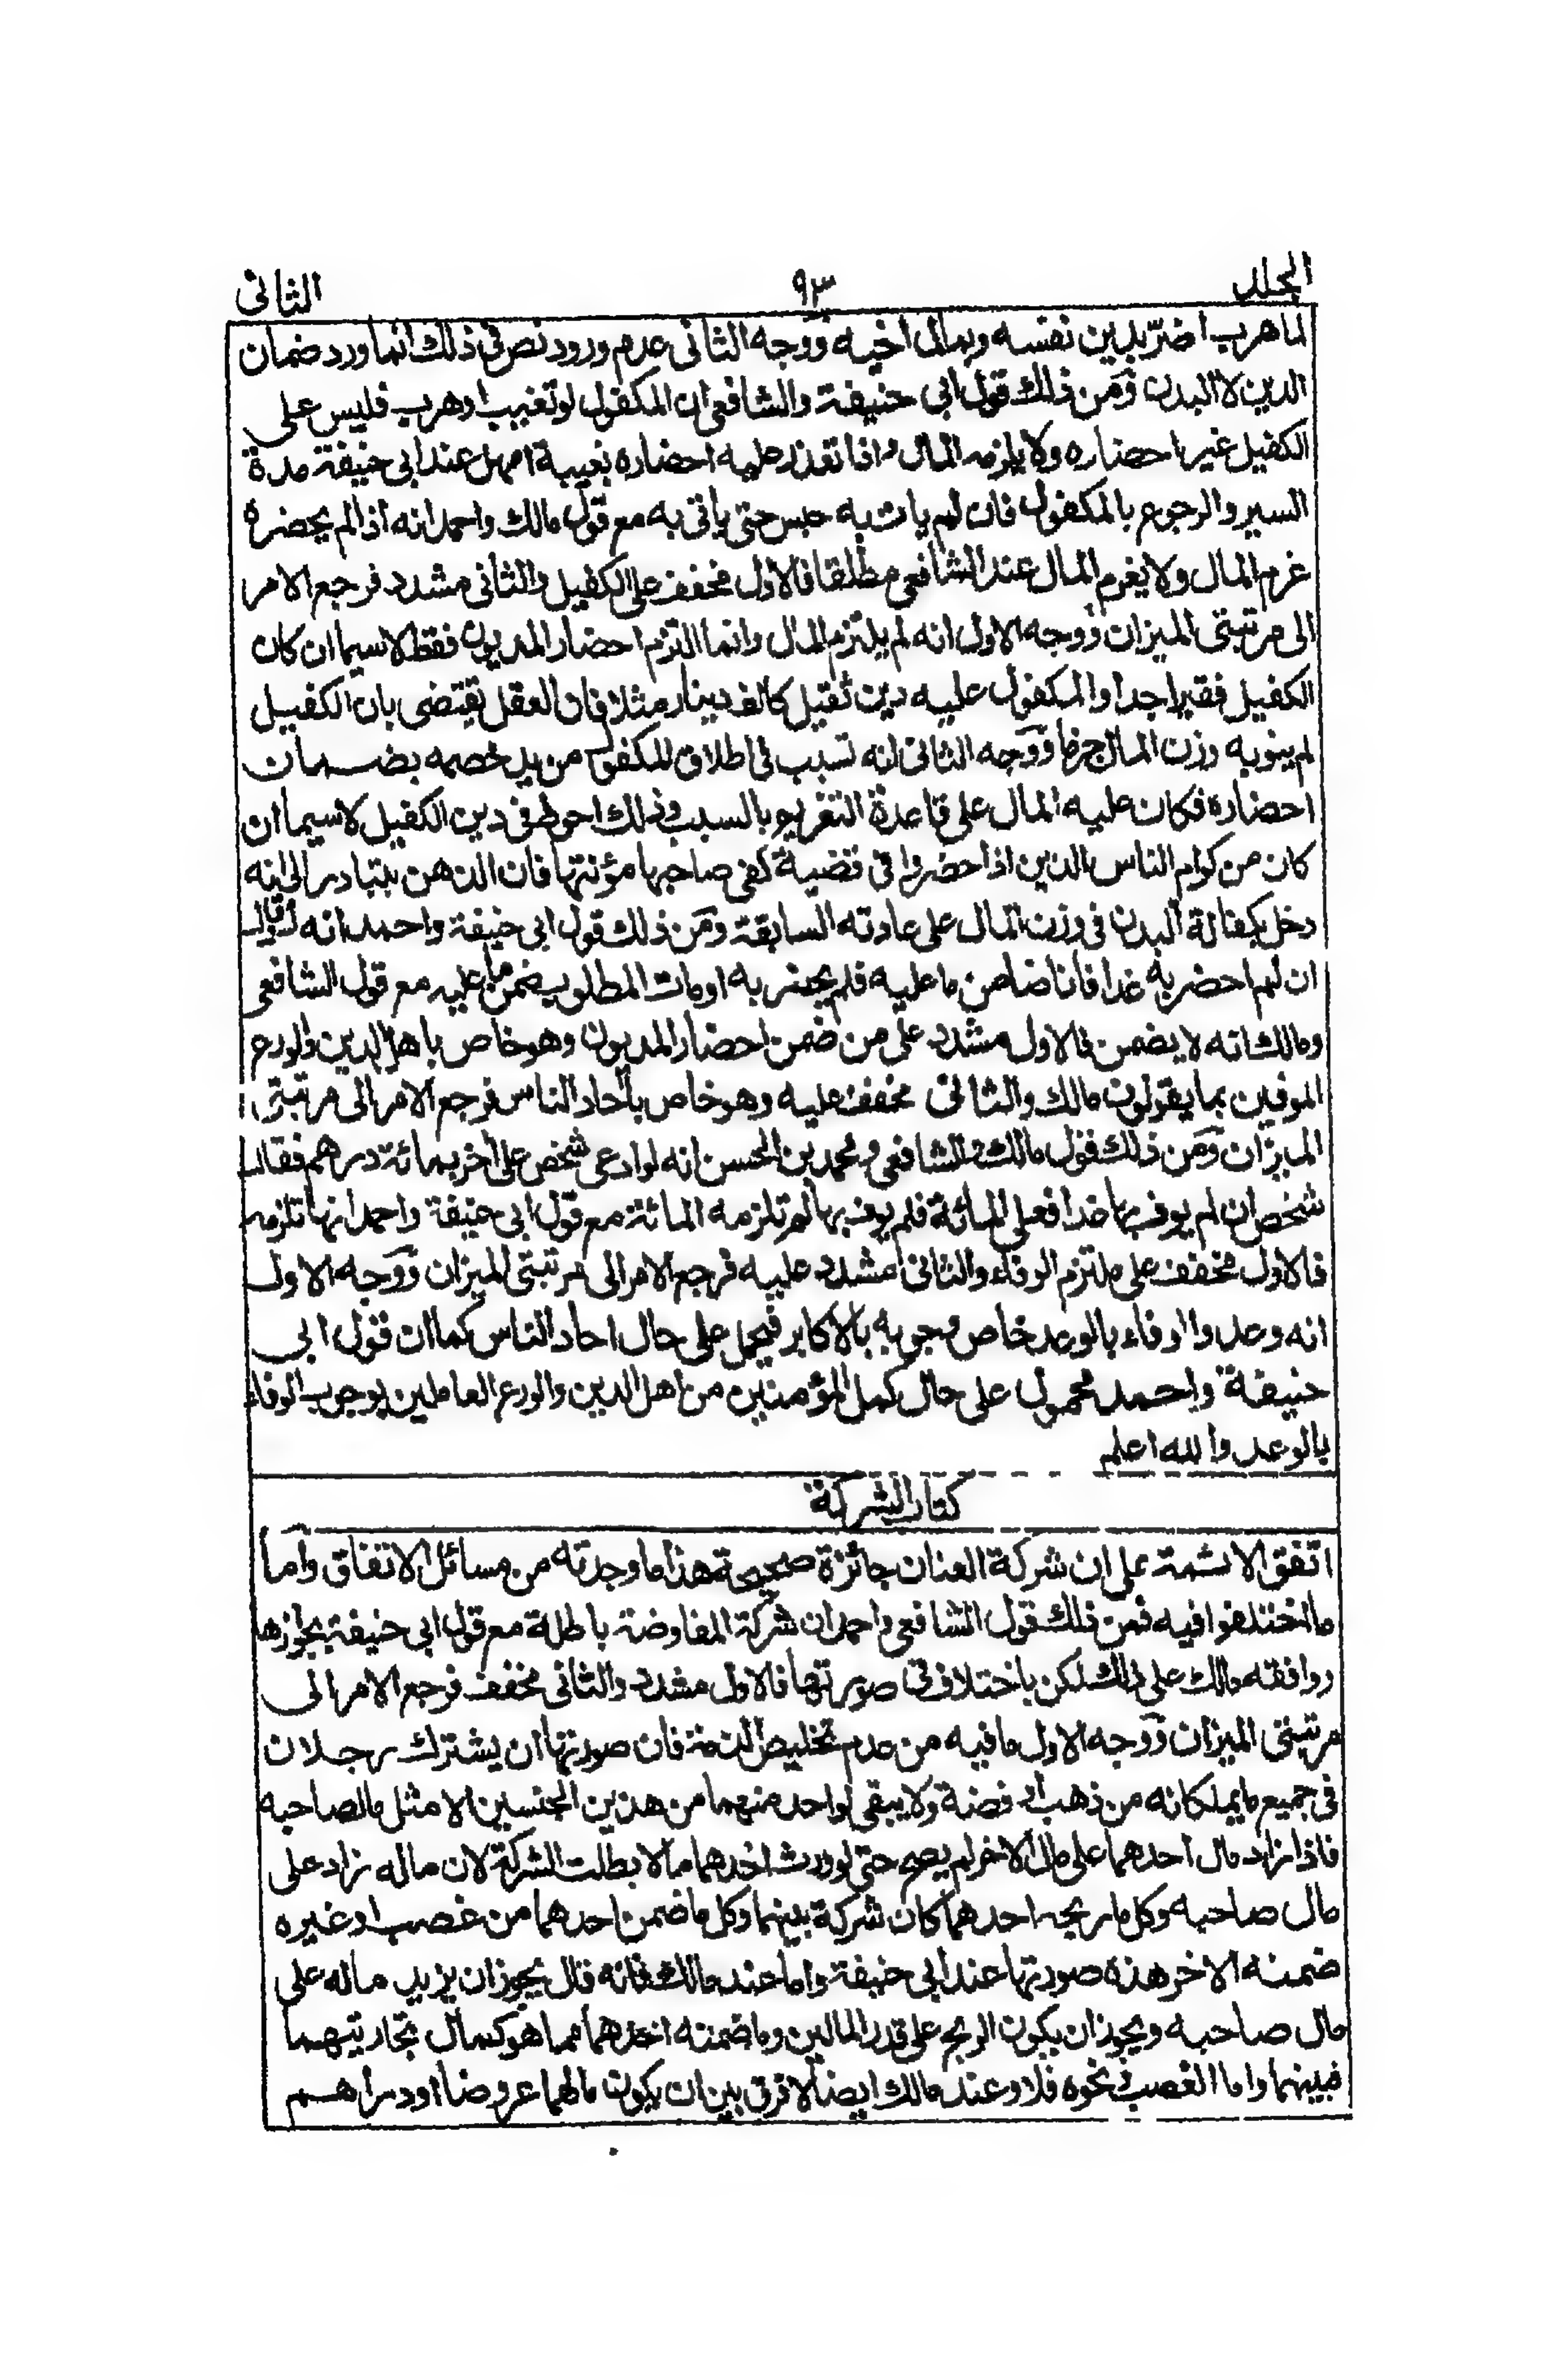 الجلد ٩٣ الثانى
لما هرب اضرّ بدين نفسه وبمال اخيه ووجه الثانى عدم ورود نص فى ذلك انما ورد ضمان
الدين لا البدن ومن ذلك قول ابى حنيفة والشافعى ان المكفول لو تغيب او هرب فليس على
الكفيل غير احضاره ولا يلزمه المال واذا تعذر عليه احضاره بغيبة امهل عند ابى حنيفة مدة
السير والرجوع بالمكفول فان لم يات به حبس حتى ياتى به مع قول مالك واحمد انه اذا لم يحضره
غرم المال ولا يغرم المال عند الشافعى مطلقا فالاول مخفف على الكفيل والثانى مشدد فرجع الامر
الى مرتبتى الميزان ووجه الاول انه لم يلتزم المال وانما التزم احضار المديون فقط لا سيما ان كان
الكفيل فقيرا جدا والمكفول عليه دين ثقيل كالف دينار مثلا فان العقل يقتضى بان الكفيل
لم ينو به وزن المال جزما ووجه الثانى انه تسبب فى اطلاق المكفول من يد خصمه بضمان
احضاره فكان عليه المال على قاعدة التغريم بالسبب وذلك احوط فى دين الكفيل لا سيما ان
كان من كرام الناس الذين اذا حضروا فى قضية كفى صاحبها مؤنتها فان الذهن يتبادر الى انه
دخل بكفالة البدن فى وزن المال على عادته السابقة ومن ذلك قول ابى حنيفة واحمد انه لو قال
ان لم احضر به غدا فانا ضامن ما عليه فلم يحضر به او مات المطلوب ضمن ما عليه مع قول الشافعى
ومالك انه لا يضمن فالاول مشدد على من ضمن احضار المديون وهو خاص باهل الدين والورع
الموفين بما يقولون مالك والثانى مخفف عليه وهو خاص بآحاد الناس فرجع الامر الى مرتبتى
الميزان ومن ذلك قول مالك والشافعى ومحمد بن الحسن انه لو ادعى شخص على آخر بمائة درهم فقال
شخص ان لم يوف بها غدا فعلى المائة فلم يوف بها لم تلزمه المائة مع قول ابى حنيفة واحمد انها تلزمه
فالاول مخفف على ملتزم الوفاء والثانى مشدد عليه فرجع الامر الى مرتبتى الميزان ووجه الاول
انه وعد والوفاء بالوعد خاص وجوبه بالاكابر فيحمل على حال احاد الناس كما ان قول ابى
حنيفة واحمد محمول على حال كمل المؤمنين من اهل الدين والورع العاملين بوجوب الوفاء
بالوعد والله اعلم
كتاب الشركة
اتفق الائمة على ان شركة العنان جائزة صحيحة هذا ما وجدته من مسائل الاتفاق واما
ما اختلفوا فيه فمن ذلك قول الشافعى واحمد ان شركة المفاوضة باطلة مع قول ابى حنيفة بجوازها
ووافقه مالك على ذلك لكن باختلاف فى صورتها فالاول مشدد والثانى مخفف فرجع الامر الى
مرتبتى الميزان ووجه الاول ما فيه من عدم تخليص الذمة فان صورتها ان يشترك رجلان
فى جميع ما يملكانه من ذهب او فضة ولا يبقى لواحد منهما من هذين الجنسين الا مثل ما لصاحبه
فاذا زاد مال احدهما على مال الاخر لم يصح حتى لو ورث احدهما مالا بطلت الشركة لان ماله زاد على
مال صاحبه وكل ما ربحه احدهما كان شركة بينهما وكل ما ضمن احدهما من غصب او غيره
ضمنه الاخر هذه صورتها عند ابى حنيفة واما عند مالك فانه قال يجوز ان يزيد ماله على
مال صاحبه ويجوز ان يكون الربح على قدر المالين وما ضمنه احدهما مما هو كمال تجارتيهما
فبينهما واما الغصب ونحوه فلا وعند مالك ايضا لا فرق بين ان يكون مالهما عروضا او دراهم